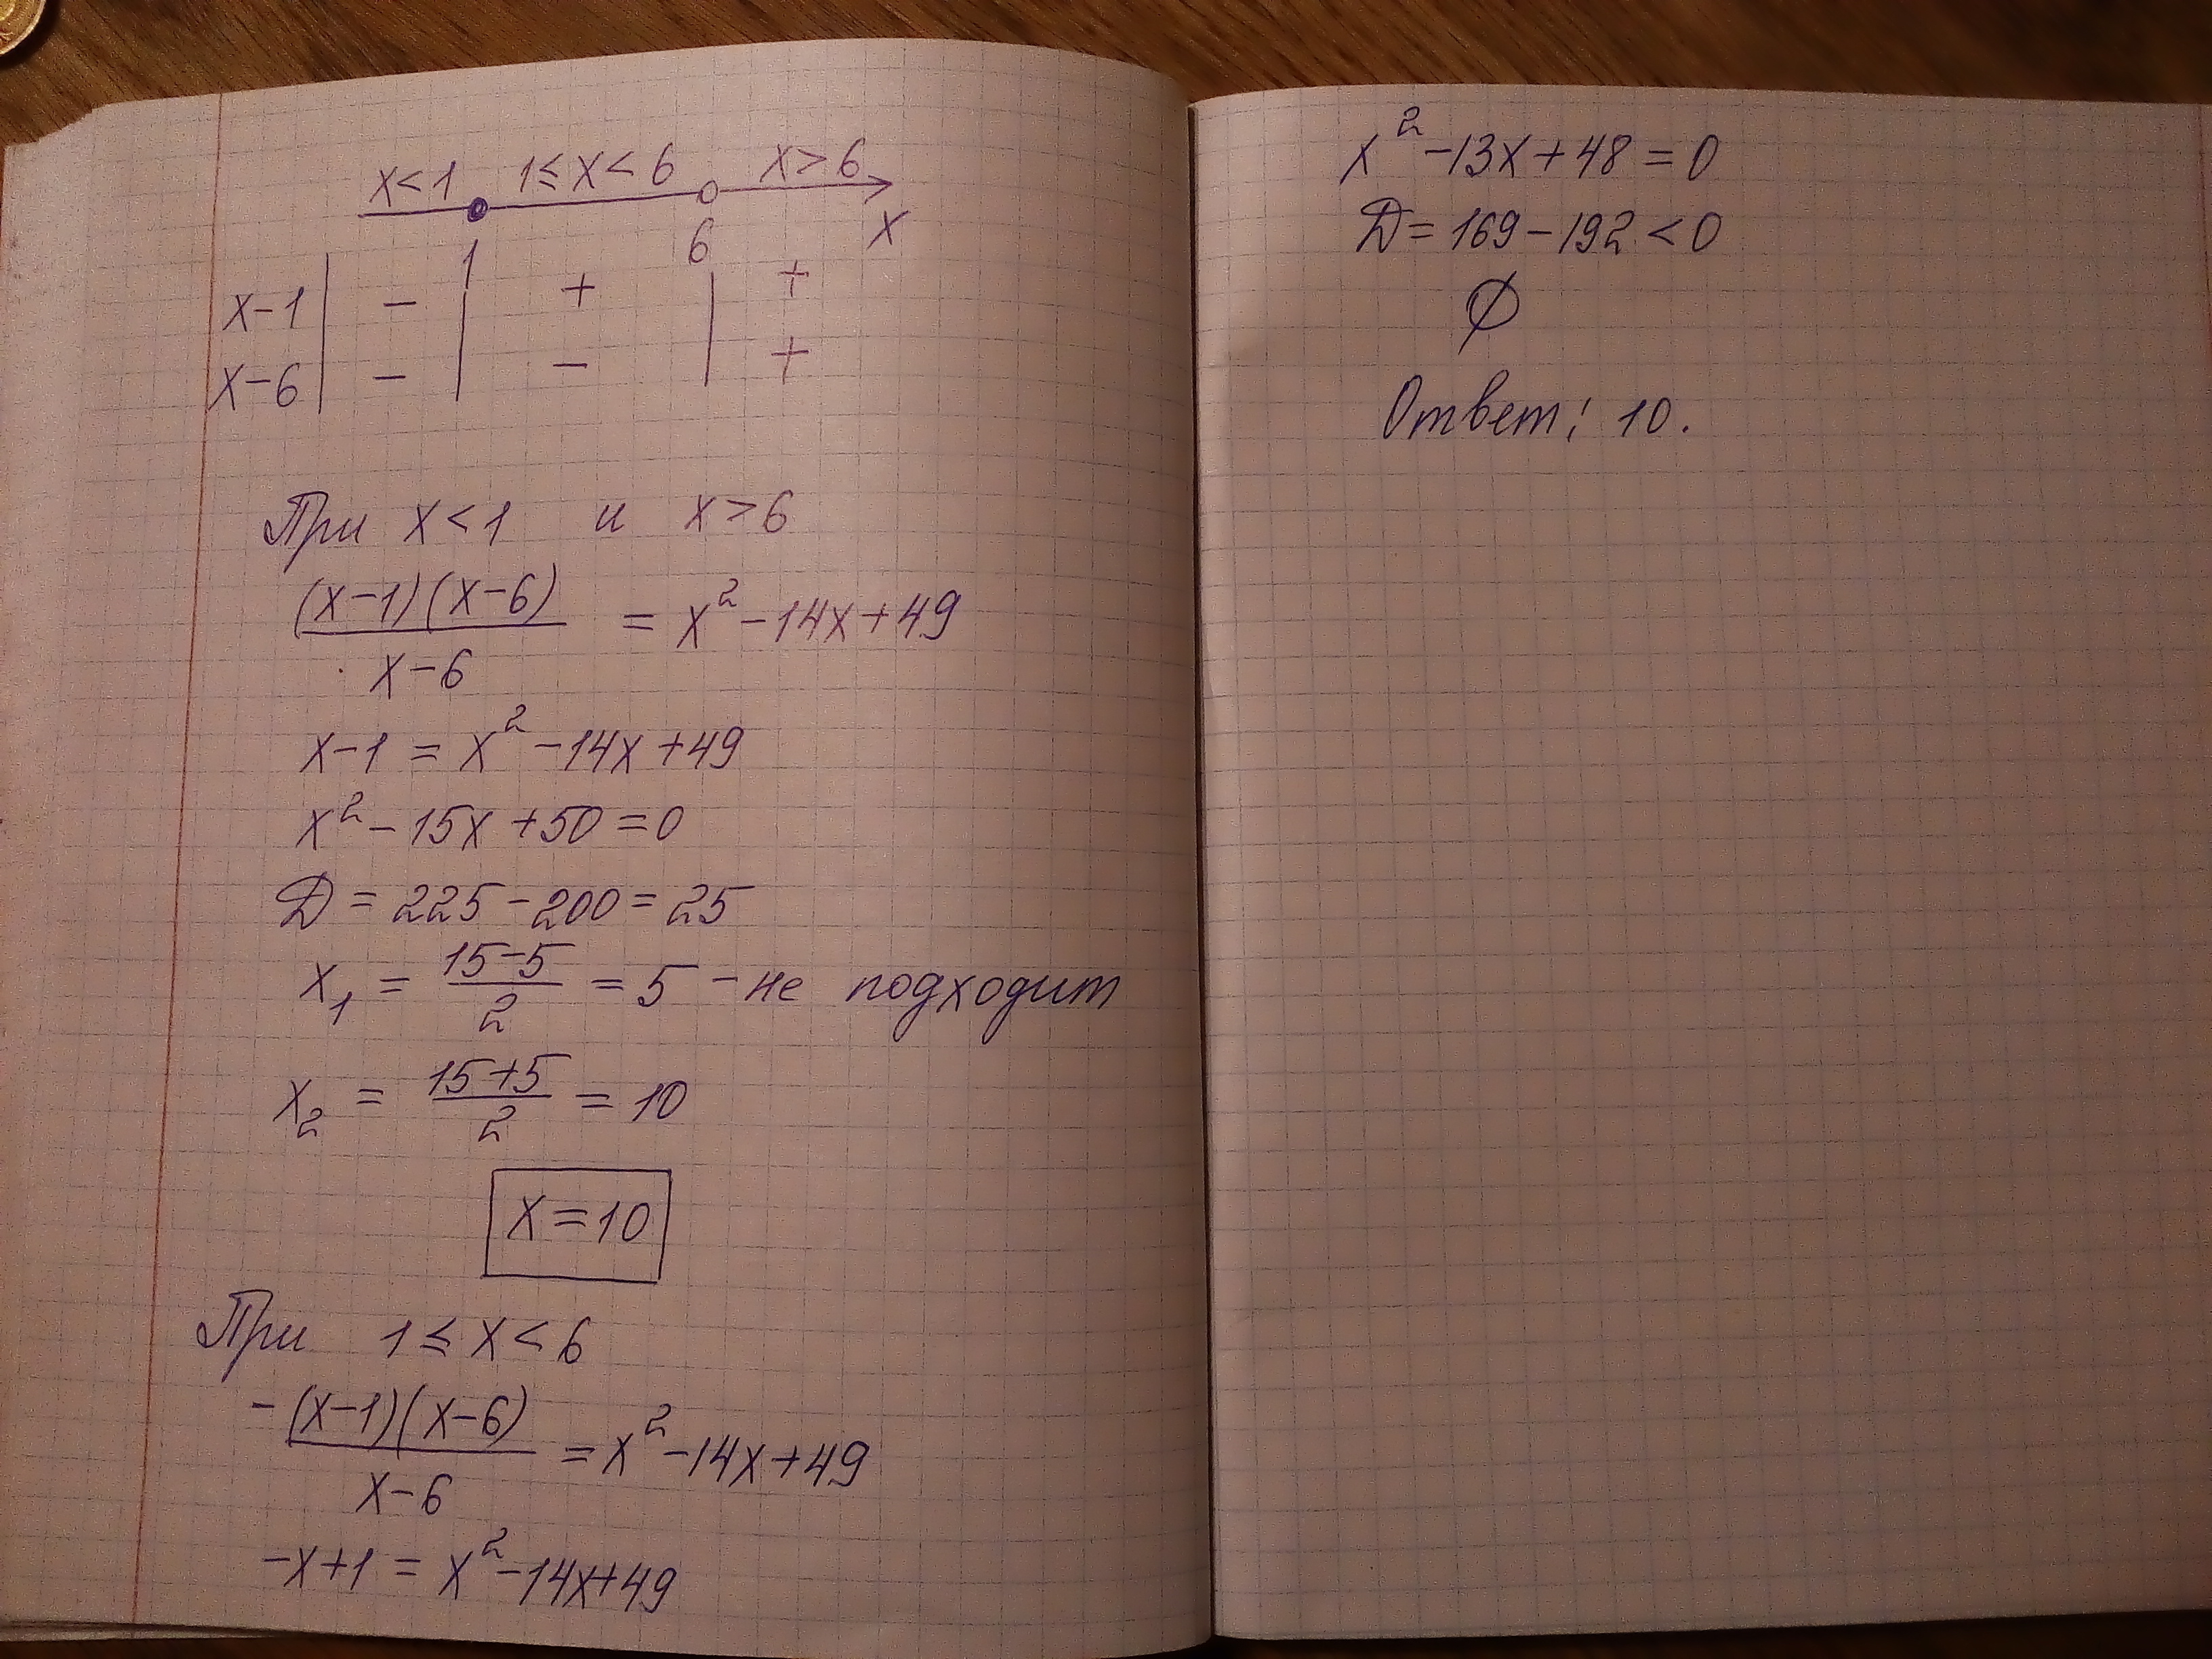 x<1 1≤x<6 x>6
1 6 x
x-1 | - | + | +
x-6 | - | - | +
При x<1 и x>6
(x-1)(x-6)/x-6 = x²-14x+49
x-1 = x²-14x+49
x²-15x+50=0
D = 225-200=25
x₁ = 15-5/2 = 5 - не подходит
x₂ = 15+5/2 = 10
x=10
При 1≤x<6
-(x-1)(x-6)/x-6 = x²-14x+49
-x+1 = x²-14x+49
x²-13x+48=0
D=169-192<0
∅
Ответ: 10.